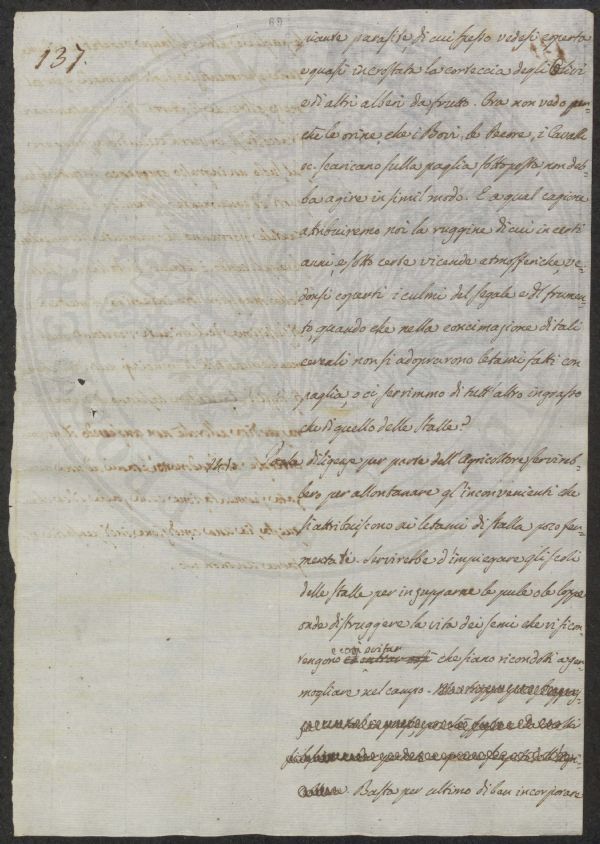 137.
piante parasite, di cui spesso vedesi coperta
e quasi incrostata la corteccia degli Olivi
e di altri alberi da frutto. Ora non vedo per-
chè le orine, che i Bovi, le Pecore, i Cavalli
scaricano sulla paglia sottoposta, non deb-
ba agire in simil modo. E a qual cagione
attribuiremo noi la ruggine di cui in certi
anni, e sotto certe vicende atmosferiche, ve-
donsi coperti i culmi del segale e del frumen-
to, quando che nella concimazione di tali
cereali non si adoprarono letami fatti con
paglia, o ci servimmo di tutt'altro ingrasso
che di quello delle stalle?
241. diligenze per parte dell'Agricoltore servireb-
bero per allontanare gl'inconvenienti che
si attribuiscono ai letami di stalla poco fer-
mentati. Servirebbe d'impiegare gli scoli
delle stalle per inzupparne le pule o le loppe
onde distruggere la vita dei semi che vi si con-
e così evitar
tengono che siano ricondotti a ger-
mogliare nel campo.
Basta per ultimo di ben incorporare